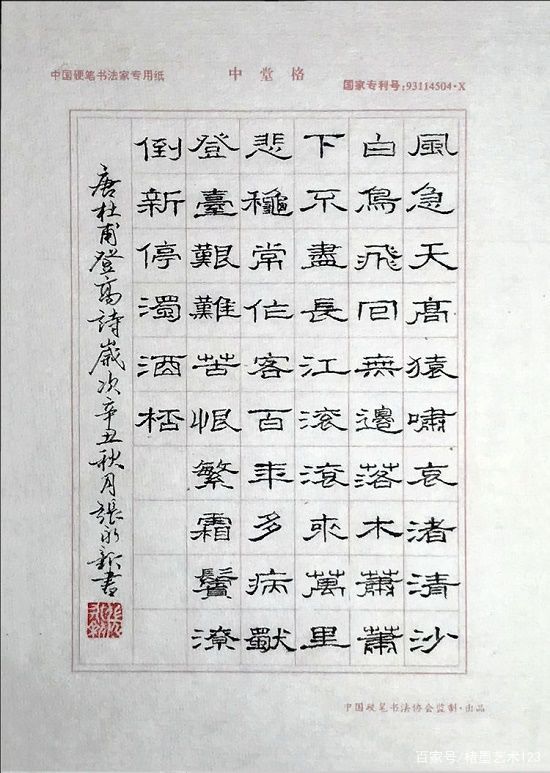 中国硬笔书法家专用纸
中堂格
国家专利号:93114504·X
風急天高猿嘯哀渚清沙
白鳥飛回無邊落木蕭蕭
下不盡長江滾滾來萬里
悲穐常作客百年多病獨
登臺艱難苦恨繁霜鬢潦
倒新停濁酒桮
唐杜甫登高詩歲次辛丑秋月張永新書
中国硬笔书法协会监制·出品
百家号/楮墨艺术123